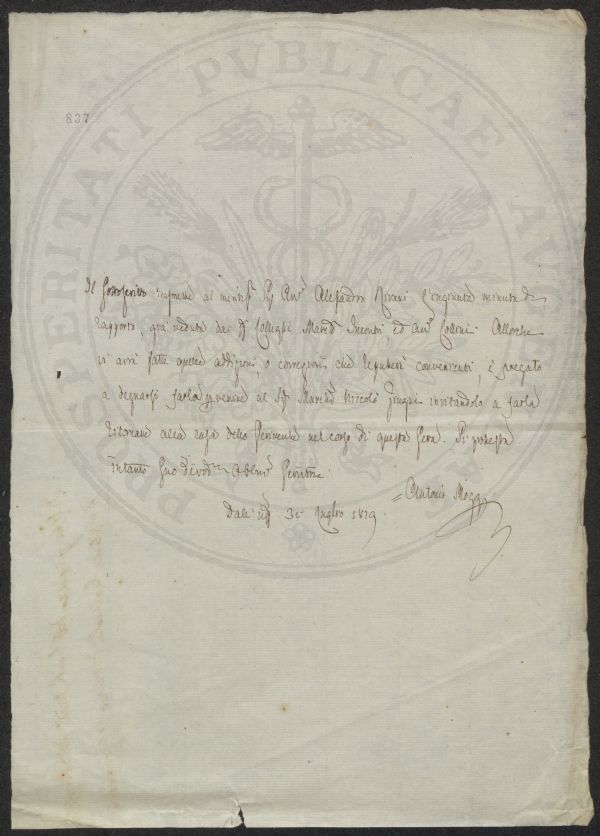 PROSPERITATI PVBLICAE AVGENDAE
837
Il Sottoscritto trasmette al merit.º Sig. Avv.º Alessandro Rivani l'ingiunta minuta di
rapporto, già veduta dai SS. Colleghi March. Incontri, ed Avv.º Collini. Allorche
vi avrà fatte quelle addizioni, o correzioni che reputerà convenienti, è pregato
a degnarsi farla pervenire al Sig. March. Niccolò Giugni invitandolo a farla
ritornare alla casa dello Scrivente nel corso di questa sera. Si protesta
intanto Suo Dev.º Obbmo Servitore
= Antonio Mozzi
Dalle 30 Luglio 1819.